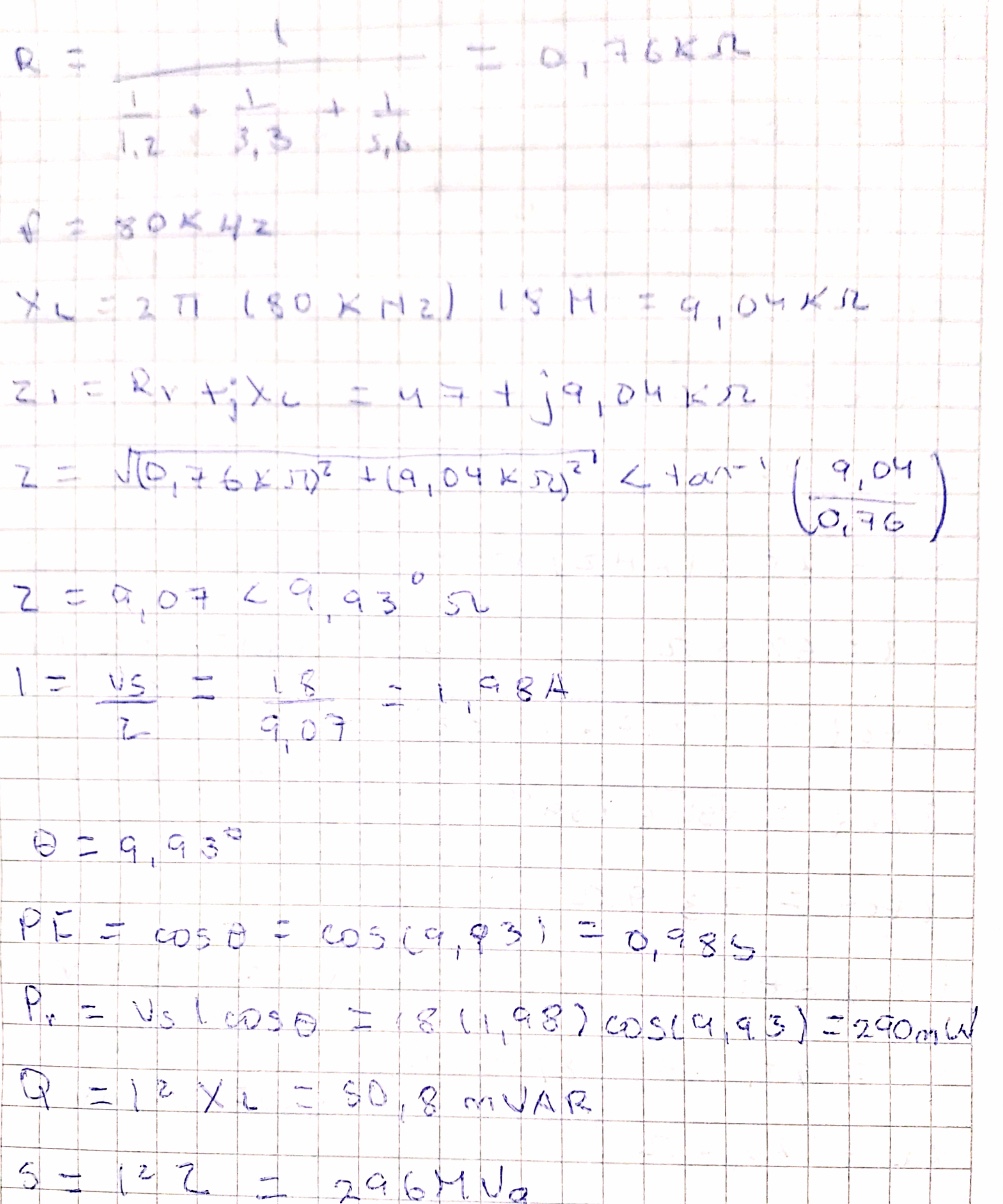 R = 1 / (1/1,2 + 1/3,3 + 1/5,6) = 0,76KΩ
f = 80KHz
XL = 2π (80KHz) 18H = 9,04KΩ
Z1 = Rr + jXL = 47 + j9,04KΩ
Z = √(0,76KΩ)² + (9,04KΩ)² < tan-1 (9,04/0,76)
Z = 9,07 < 9,93° Ω
I = Vs/Z = 18/9,07 = 1,98A
θ = 9,93°
PF = cosθ = cos(9,93) = 0,985
Pr = Vs I cosθ = 18(1,98) cos(9,93) = 290mW
Q = I² XL = 50,8 mVAR
S = I² Z = 296MVa